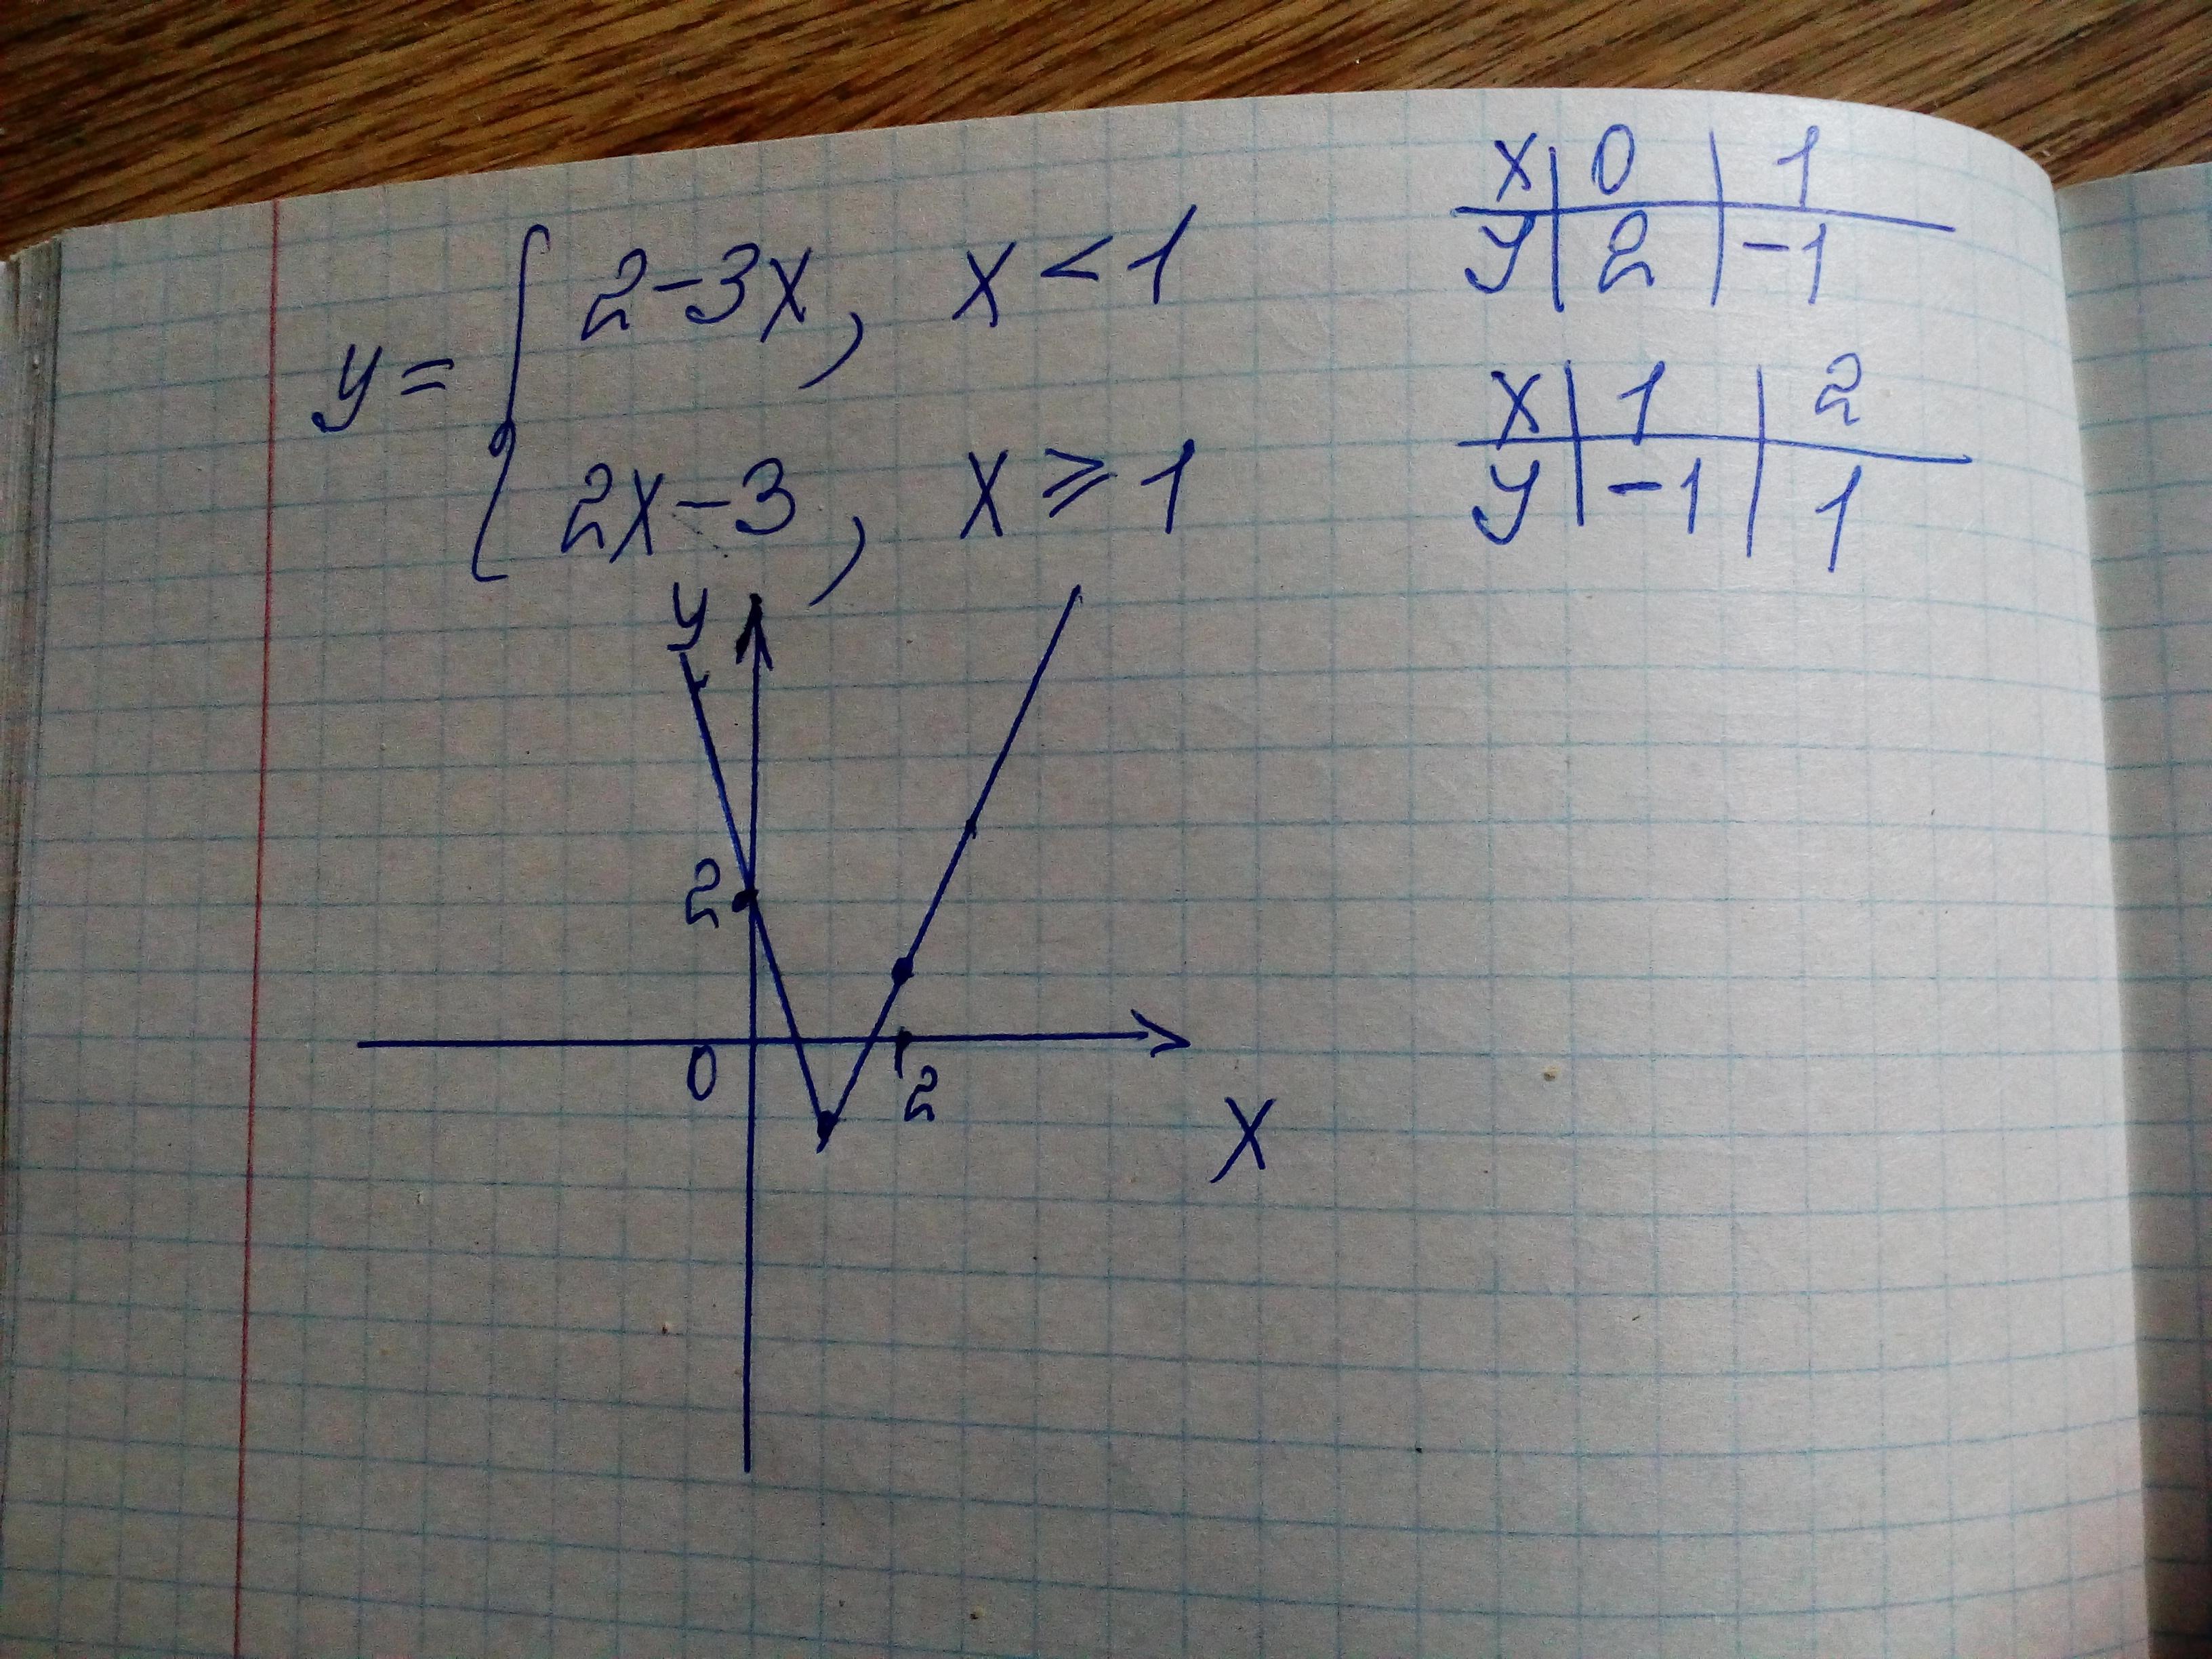 y = { 2-3x, x < 1
2x-3, x ⩾ 1
x | 0 | 1
y | 2 | -1
x | 1 | 2
y | -1 | 1
y
2
0 2
x